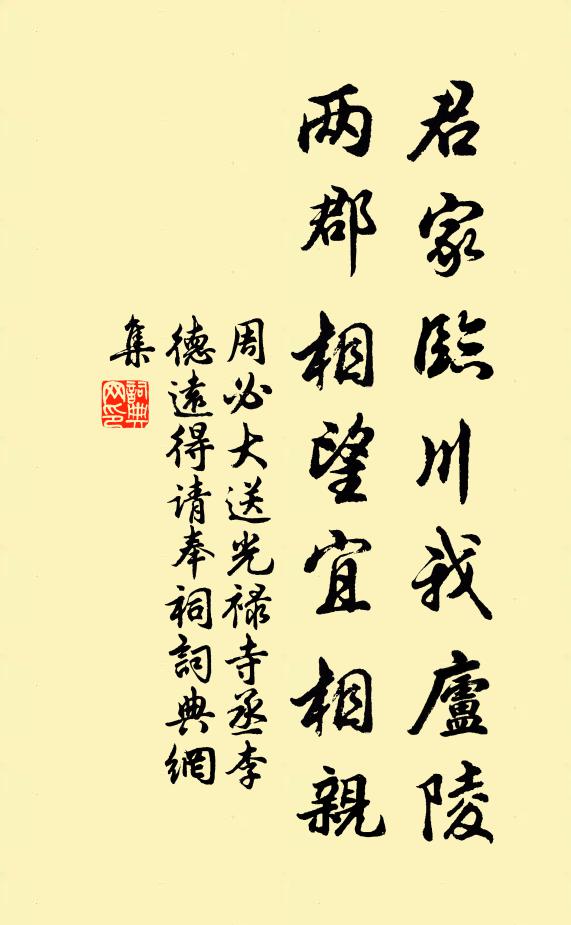 君家臨川我廬陵
两郡相望宜相親
周必大送光禄寺丞李
德遠得请奉祠詞典網
集
詞典网印